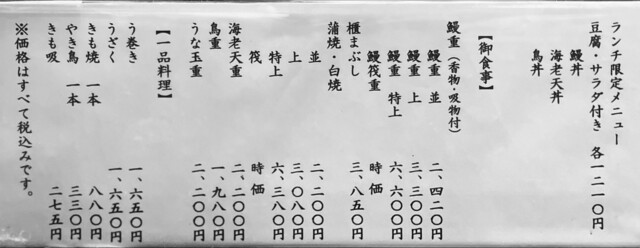 ランチ限定メニュー
豆腐・サラダ付き 各一二一〇円
鰻丼
海老天丼
鳥丼
【御食事】
鰻重（香物・吸物付）
鰻重 並 二、四二〇円
鰻重 上 三、三〇〇円
鰻重 特上 六、六〇〇円
鰻筏重 時価
櫃まぶし 三、八五〇円
蒲焼・白焼
並 二、二〇〇円
上 三、〇八〇円
特上 六、三八〇円
筏 時価
海老天重 二、二〇〇円
鳥重 一、九八〇円
うな玉重 二、二〇〇円
【一品料理】
う巻き 一、六五〇円
うざく 一、六五〇円
きも焼 一本 八八〇円
やき鳥 一本 三三〇円
きも吸 二七五円
※価格はすべて税込みです。